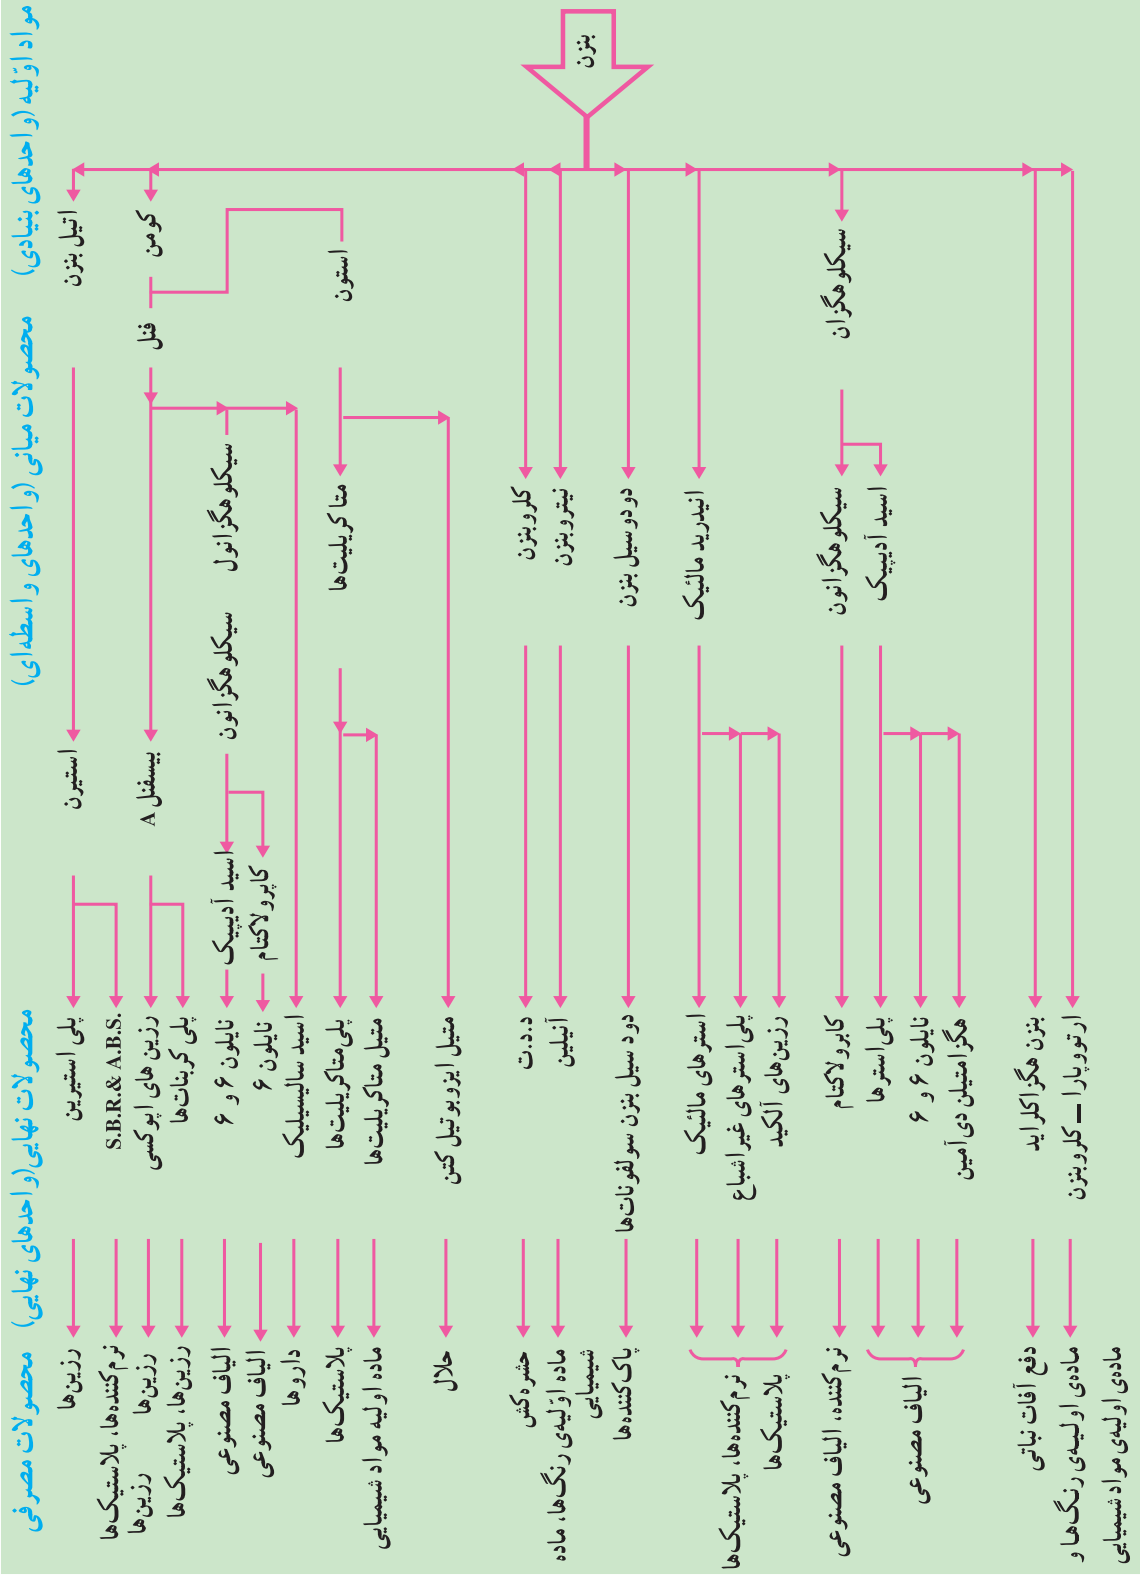 مواد اوّلیه (واحدهای بنیادی)
محصولات میانی (واحدهای واسطه‌ای)
محصولات نهایی(واحدهای نهایی)
محصولات مصرفی
بنزن
اتیل بنزن
کومن
فنل
استون
سیکلوهگزان
سیکلوهگزانول
سیکلوهگزانون
متاکریلیت‌ها
کلروبنزن
نیتروبنزن
دودوسیل بنزن
انیدرید مالئیک
سیکلوهگزانون
اسید آدیپیک
استیرن
بیسفنل A
اسید آدیپیک
کاپرولاکتام
پلی استیرین
S.B.R.& A.B.S.
رزین های اپوکسی
پلی کربنات‌ها
نایلون ۶ و ۶
نایلون ۶
اسید سالیسیلیک
پلی‌متاکریلیت‌ها
متیل متاکریلیت‌ها
متیل ایزوبوتیل کتن
د.د.ت
آنیلین
دود سیل بنزن سولفونات‌ها
استرهای مالئیک
پلی‌استرهای غیراشباع
رزین‌های آلکید
کاپرولاکتام
پلی‌استرها
نایلون ۶ و ۶
هگزامتیلن دی‌آمین
بنزن هگزاکلراید
ارتووپارا ــ کلروبنزن
رزین‌ها
نرم‌کننده‌ها، پلاستیک‌ها
رزین‌ها
رزین‌ها
رزین‌ها، پلاستیک‌ها
الیاف مصنوعی
الیاف مصنوعی
داروها
پلاستیک‌ها
ماده اولیه مواد شیمیایی
حلال
حشره‌کش
ماده اوّلیه‌ی رنگ‌ها، ماده
شیمیایی
پاک‌کننده‌ها
نرم‌کننده‌ها، پلاستیک‌ها
پلاستیک‌ها
نرم‌کننده، الیاف مصنوعی
الیاف مصنوعی
دفع آفات نباتی
ماده‌ی اولیه‌ی رنگ‌ها و
ماده‌ی اولیه‌ی مواد شیمیایی